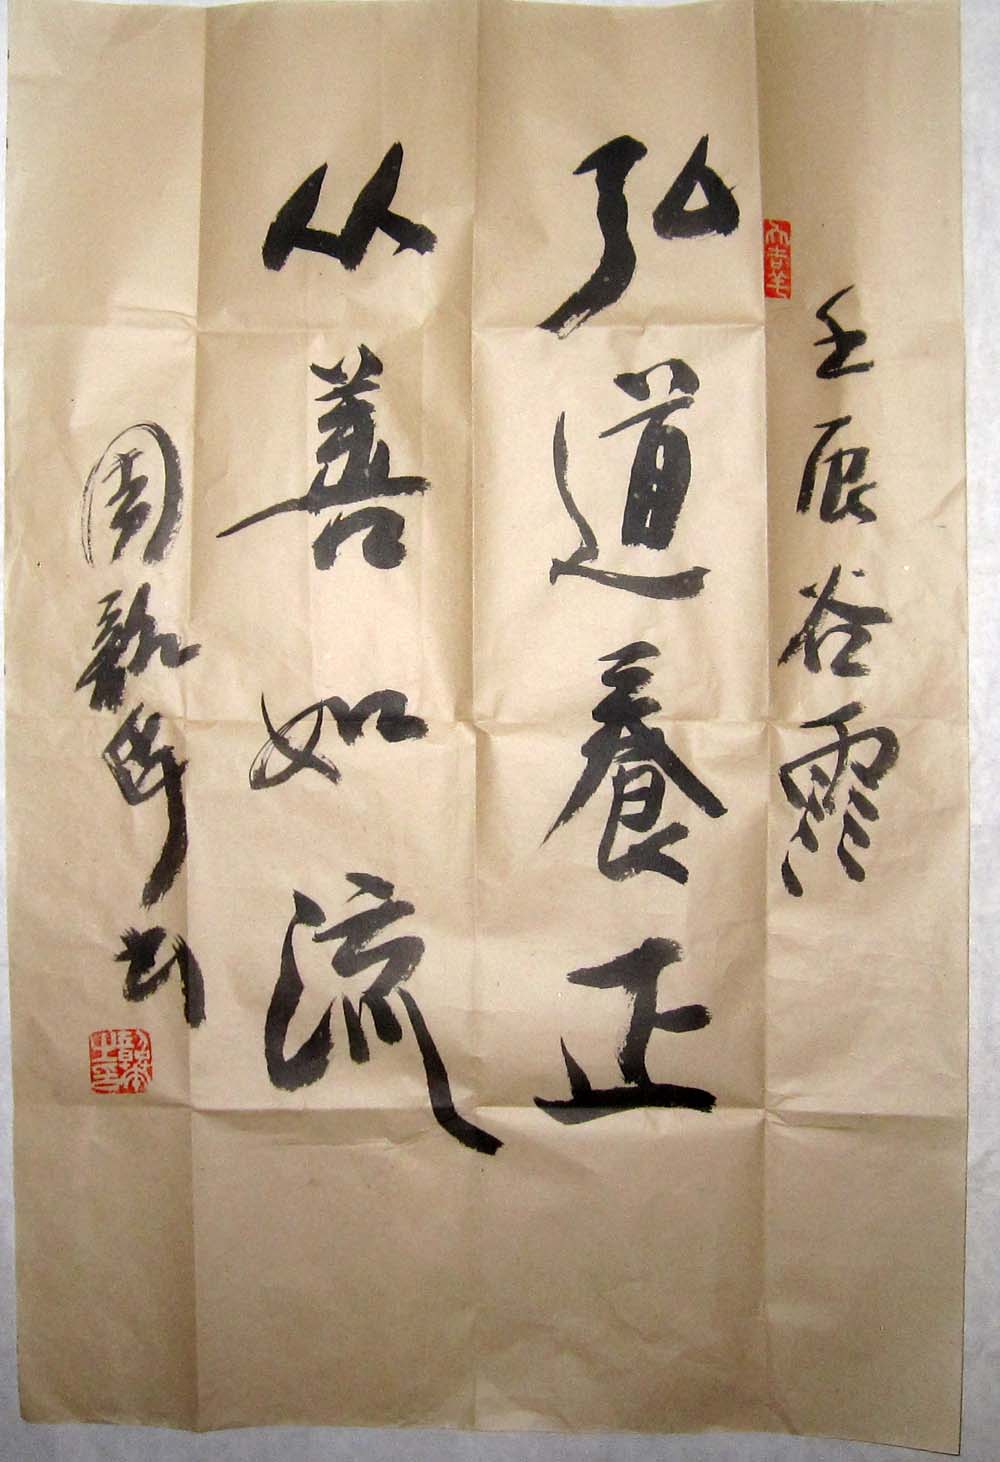 壬辰谷雨
弘道養正
从善如流
周韶华书